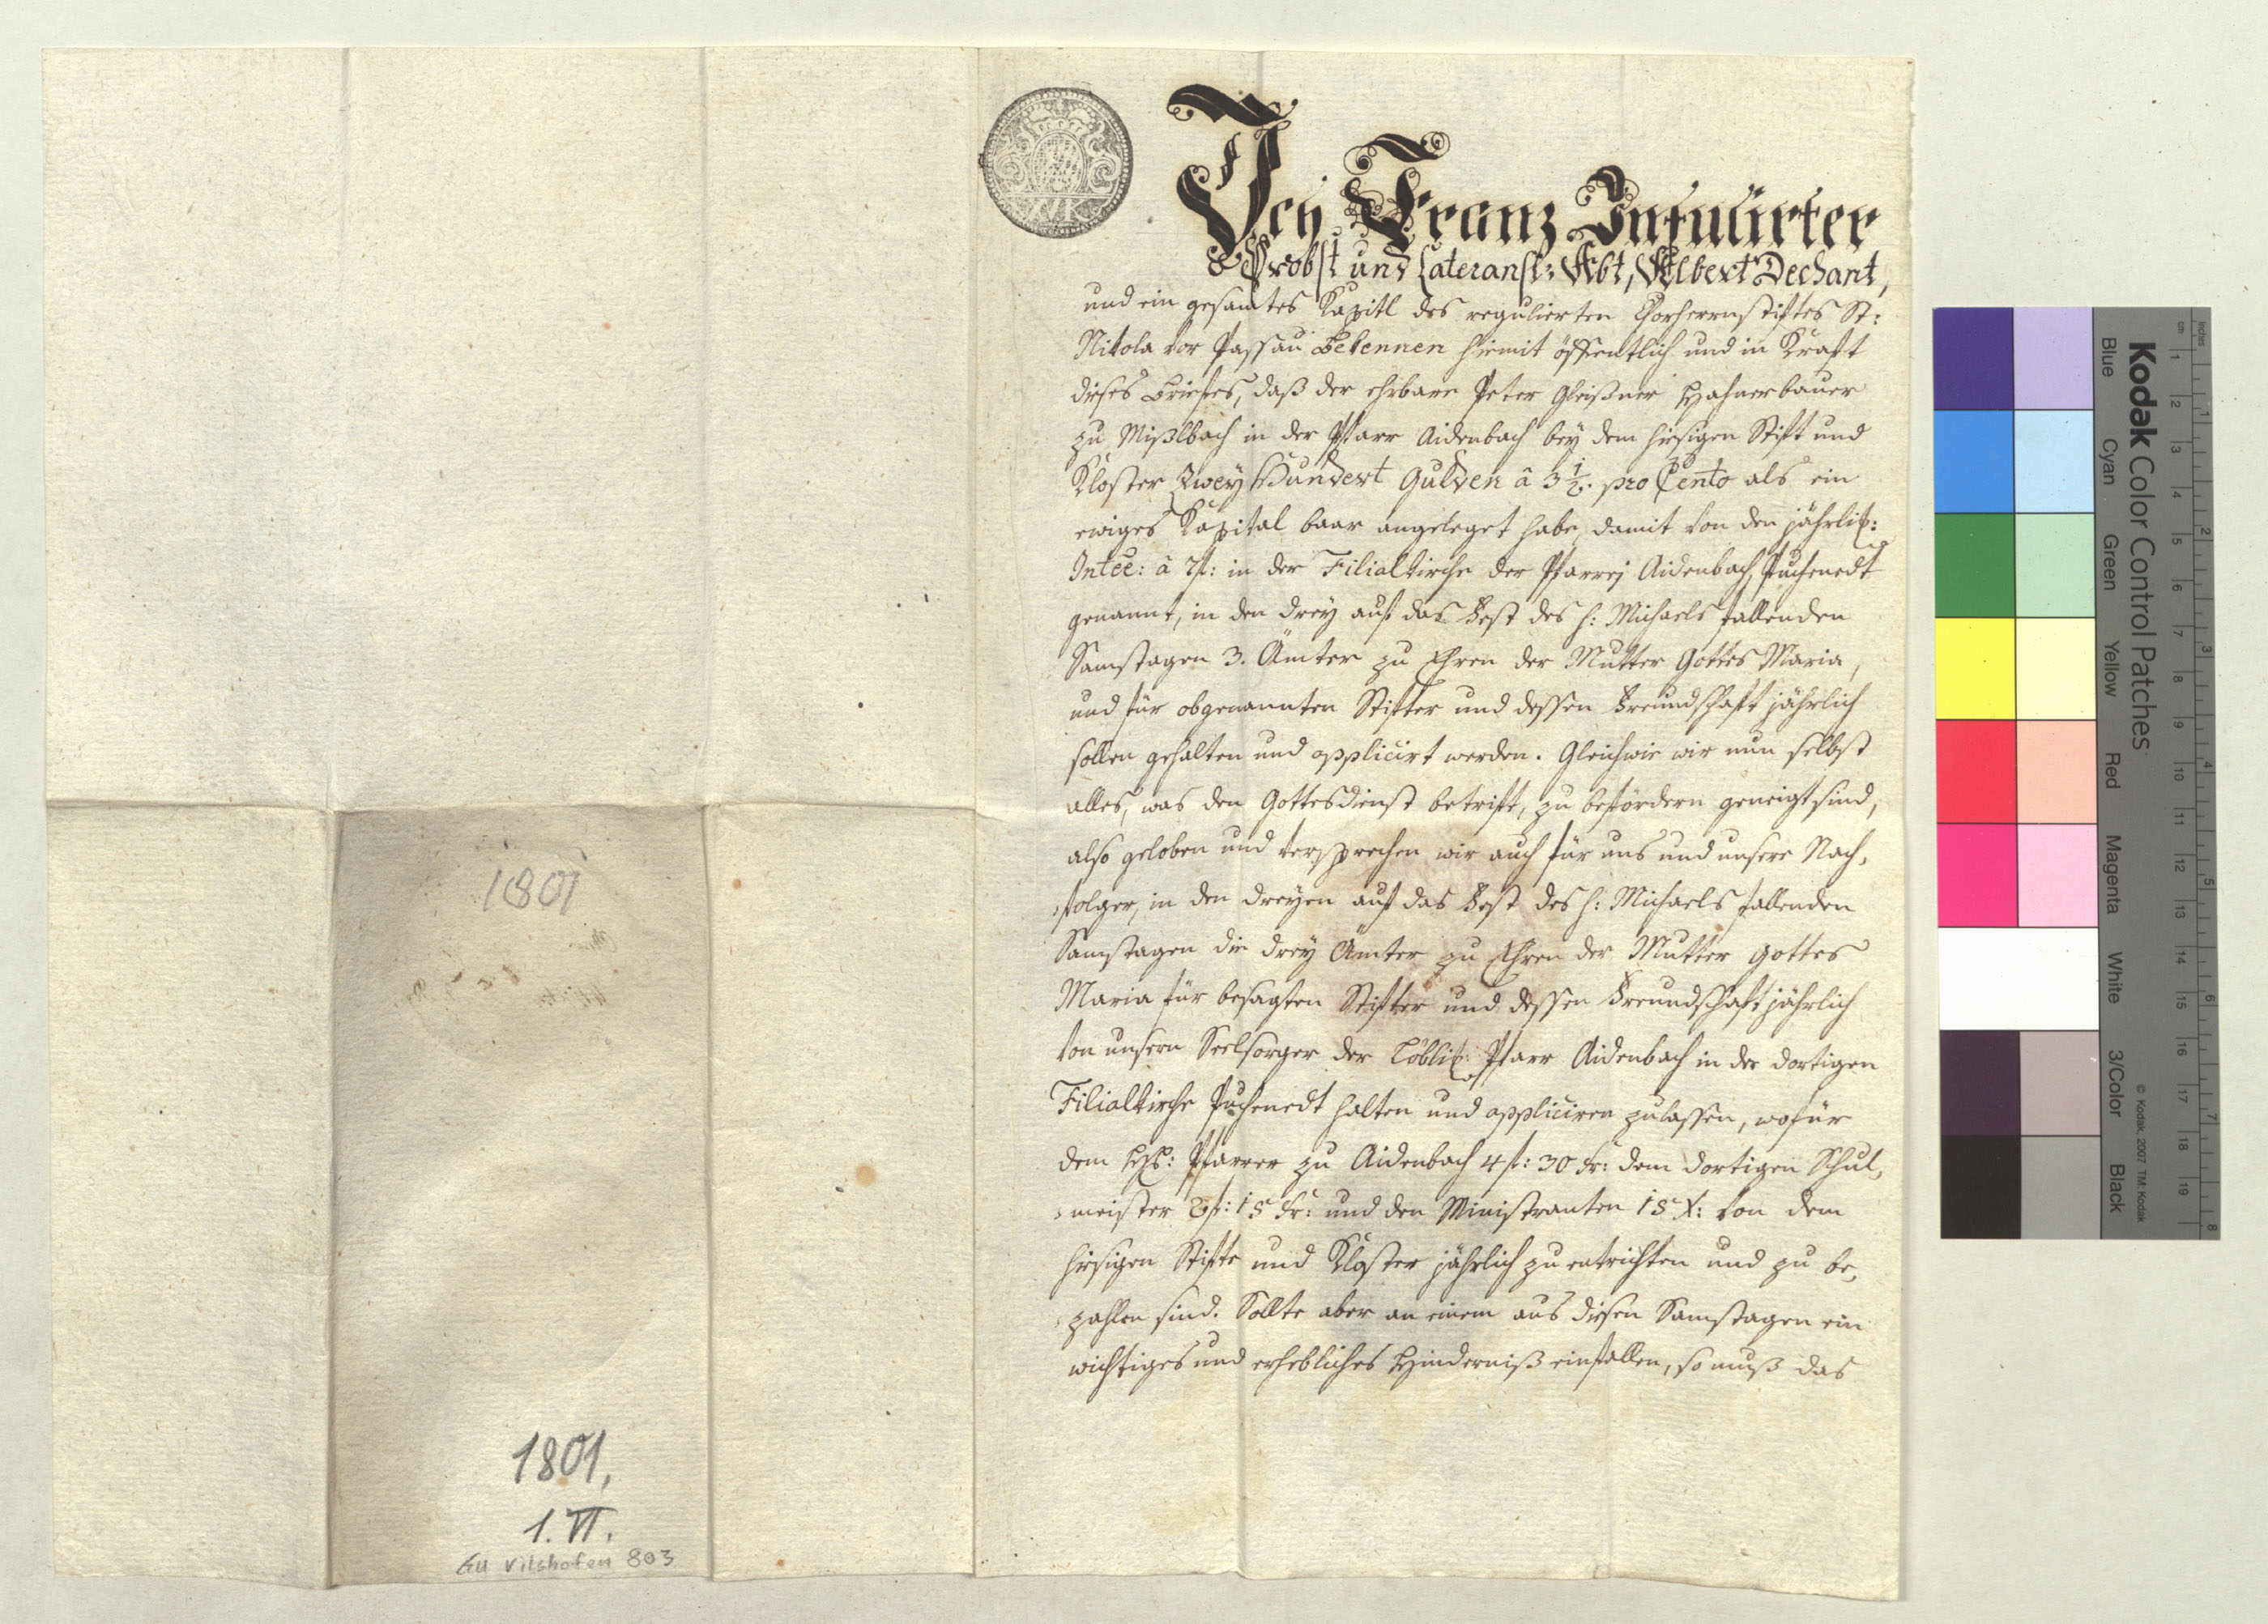 Ich Franz Infulirter
Probst und Lateransl: Abt, Albert Dechant,
und ein gesamtes Kapitl des regulierten Chorherrnstiftes St:
Nikola vor Passau Bekennen hiemit öffentlich und in Kraft
dieses Briefes, daß der ehrbare Peter Gleißner Hahnerbauer
zu Mißlbach in der Pfarr Aidenbach bey dem hiesigen Stift und
Kloster Zwey Hundert Gulden â 3 1/2. pro Cento als ein
ewiges Kapital baar angeleget habe, damit von den jährlich:
Intee: â 7f: in der Filialkirche der Pfarrej Aidenbach, Puchenedt
genannt, in den drey auf das Fest des h: Michaels fallenden
Samstagen 3. Ämter zu Ehren der Mutter Gottes Maria,
und für obgenannten Stifter und dessen Freundschaft jährlich
sollen gehalten und applicirt werden. Gleichwie wir nun selbst
alles, was den Gottesdienst betrift, zu befördern geneigt sind,
also geloben und versprechen wir auch für uns und unsere Nach,
folger, in den dreyen auf das Fest des h: Michaels fallenden
Samstagen die drey Ämter zu Ehren der Mutter Gottes
Maria für besagten Stifter und dessen Freundschaft jährlich
von unsern Seelsorger der löblich: Pfarr Aidenbach in der dortigen
Filialkirche Puchenedt halten und appliciren zulassen, wofür
dem Pfarrer zu Aidenbach 4f: 30 kr: dem dortigen Schul,
meister 2f: 15 kr: und den Ministranten 15 X: von dem
hiesigen Stifte und Kloster jährlich zu entrichten und zu be,
zahlen sind. Sollte aber an einem aus diesen Samstagen ein
wichtiges und erhebliches Hinderniß einfallen, so muß das
1801
1801,
1. VI.
GU Vilshofen 803
Kodak Color Control Patches
Blue Cyan Green Yellow Red Magenta White 3/Color Black
© Kodak, 2007 TM: Kodak
cm 1 2 3 4 5 6 7 8 9 10 11 12 13 14 15 16 17 18 19
inches 1 2 3 4 5 6 7 8